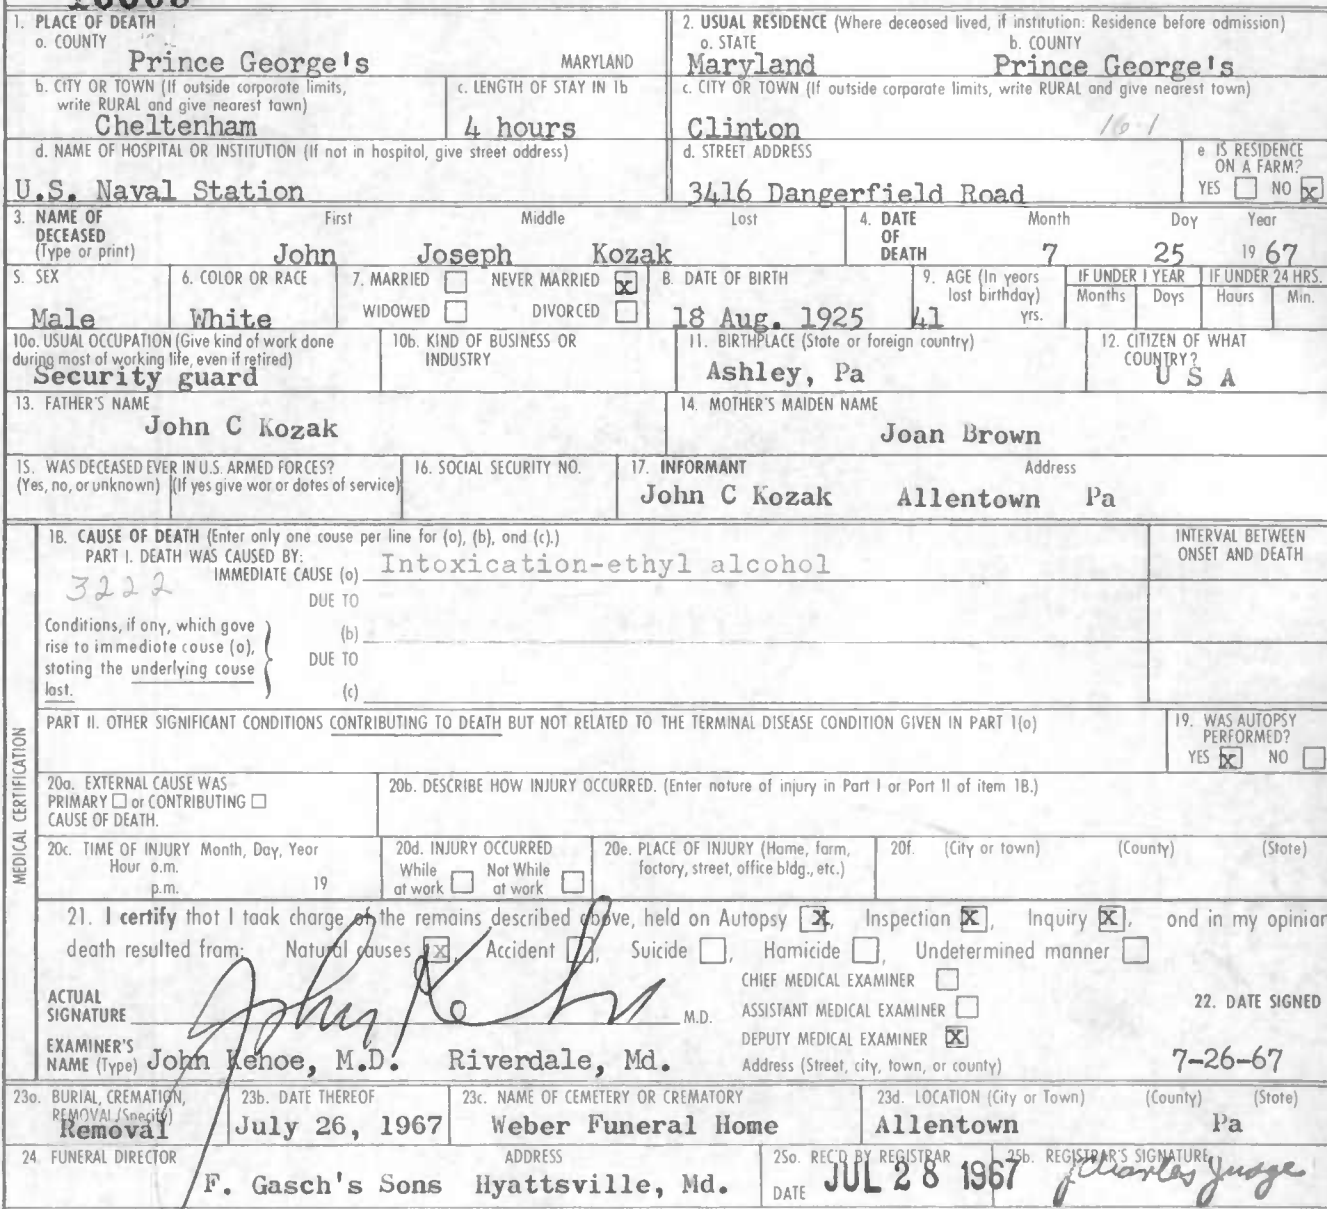 1. PLACE OF DEATH
a. COUNTY
Prince George's MARYLAND
2. USUAL RESIDENCE (Where deceased lived, if institution: Residence before admission)
a. STATE b. COUNTY
Maryland Prince George's
b. CITY OR TOWN (If outside corporate limits, write RURAL and give nearest town)
Cheltenham
c. LENGTH OF STAY IN 1b
4 hours
c. CITY OR TOWN (If outside corporate limits, write RURAL and give nearest town)
Clinton 16-1
d. NAME OF HOSPITAL OR INSTITUTION (If not in hospital, give street address)
U.S. Naval Station
d. STREET ADDRESS
3416 Dangerfield Road
e IS RESIDENCE ON A FARM?
YES NO x
3. NAME OF DECEASED (Type or print)
First Middle Last
John Joseph Kozak
4. DATE OF DEATH
Month Day Year
7 25 19 67
5. SEX
Male
6. COLOR OR RACE
White
7. MARRIED NEVER MARRIED x
WIDOWED DIVORCED
8. DATE OF BIRTH
18 Aug. 1925
9. AGE (In years last birthday)
41 yrs.
IF UNDER 1 YEAR
Months Days
IF UNDER 24 HRS.
Hours Min.
10a. USUAL OCCUPATION (Give kind of work done during most of working life, even if retired)
Security guard
10b. KIND OF BUSINESS OR INDUSTRY
11. BIRTHPLACE (State or foreign country)
Ashley, Pa
12. CITIZEN OF WHAT COUNTRY?
U S A
13. FATHER'S NAME
John C Kozak
14. MOTHER'S MAIDEN NAME
Joan Brown
15. WAS DECEASED EVER IN U.S. ARMED FORCES?
(Yes, no, or unknown) (If yes give war or dates of service)
16. SOCIAL SECURITY NO.
17. INFORMANT Address
John C Kozak Allentown Pa
MEDICAL CERTIFICATION
18. CAUSE OF DEATH (Enter only one cause per line for (a), (b), and (c).)
PART I. DEATH WAS CAUSED BY:
IMMEDIATE CAUSE (a) Intoxication-ethyl alcohol
3222
DUE TO
Conditions, if any, which gave rise to immediate cause (a), stating the underlying cause last.
(b)
DUE TO
(c)
INTERVAL BETWEEN ONSET AND DEATH
PART II. OTHER SIGNIFICANT CONDITIONS CONTRIBUTING TO DEATH BUT NOT RELATED TO THE TERMINAL DISEASE CONDITION GIVEN IN PART 1(a)
19. WAS AUTOPSY PERFORMED?
YES x NO
20a. EXTERNAL CAUSE WAS
PRIMARY or CONTRIBUTING
CAUSE OF DEATH.
20b. DESCRIBE HOW INJURY OCCURRED. (Enter nature of injury in Part I or Part II of item 18.)
20c. TIME OF INJURY Month, Day, Year
Hour a.m.
p.m. 19
20d. INJURY OCCURRED
While at work Not While at work
20e. PLACE OF INJURY (Home, farm, factory, street, office bldg., etc.)
20f. (City or town) (County) (State)
21. I certify that I took charge of the remains described above, held on Autopsy X, Inspection X, Inquiry X, and in my opinion
death resulted from: Natural causes x, Accident, Suicide, Homicide, Undetermined manner
CHIEF MEDICAL EXAMINER
ACTUAL SIGNATURE John Kehoe M.D.
ASSISTANT MEDICAL EXAMINER
DEPUTY MEDICAL EXAMINER X
22. DATE SIGNED
7-26-67
EXAMINER'S NAME (Type) John Kehoe, M.D. Riverdale, Md.
Address (Street, city, town, or county)
23a. BURIAL, CREMATION, REMOVAL (Specify)
Removal
23b. DATE THEREOF
July 26, 1967
23c. NAME OF CEMETERY OR CREMATORY
Weber Funeral Home
23d. LOCATION (City or Town) (County) (State)
Allentown Pa
24. FUNERAL DIRECTOR ADDRESS
F. Gasch's Sons Hyattsville, Md.
25a. REC'D BY REGISTRAR
DATE JUL 28 1967
25b. REGISTRAR'S SIGNATURE
J Charles Judge